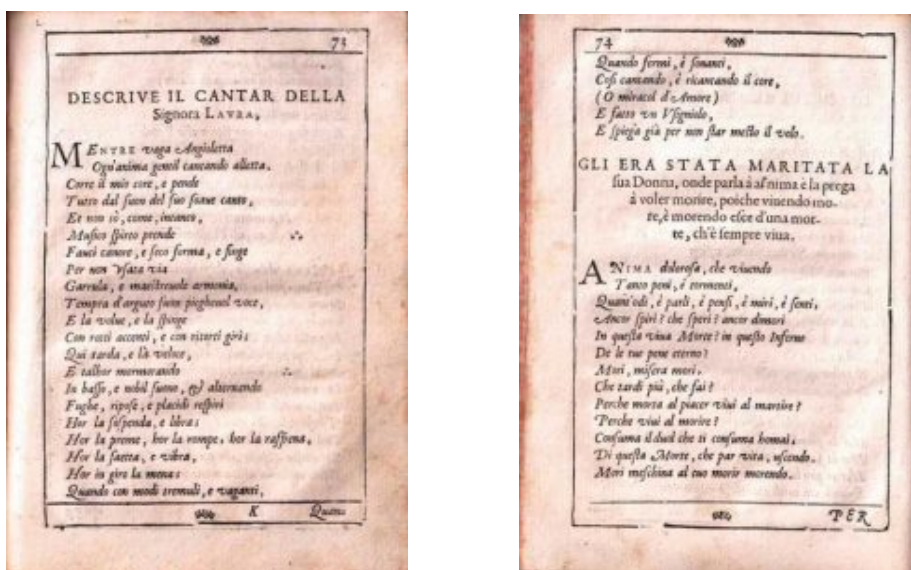 73
DESCRIVE IL CANTAR DELLA
Signora LAVRA.
MENTRE vaga Angioletta
Ogn'anima gentil cantando alletta,
Corre il mio core, e pende
Tutto dal suon del suo soaue canto,
Et non sò, come, intanto,
Musico spirto prende
Fauci canore, e seco forma, e finge
Per non vsata via
Garrula, e maestreuole armonia.
Tempra d'arguto suon pieghenol voce,
E la volue, e la spinge
Con rotti accenti, e con ritorti giri;
Qui tarda, e là veloce,
E talhor mormorando
In basso, e nobil suono, & alternando
Fughe, riposi, e placidi respiri
Hor la sospende, e libra;
Hor la preme, hor la rompe, hor la raffrena,
Hor la saetta, e vibra,
Hor in giro la mena:
Quando con modi tremuli, e vaganti,
K Quando
74
Quando fermi, è sonanti,
Cosi cantando, è ricantando il core,
(O miracol d'Amore)
E fatto vn Vsigniolo,
E spiega già per non star mesto il volo.
GLI ERA STATA MARITATA LA
sua Donna, onde parla à l'anima è la prega
à voler morire, poiche viuendo mo-
re, è morendo esce d'una mor-
te, ch'è sempre viua.
ANIMA dolorosa, che viuendo
Tanto peni, è tormenti,
Quant'odi, è parli, è pensi, è miri, è senti,
Ancor spiri? che speri? ancor dimori
In questa viua Morte? in questo Inferno
De le tue pene eterno?
Mori, misera mori.
Che tardi più, che fai?
Perche morta al piacer viui al martire?
Perche viui al morire?
Consuma il duol che ti consuma homai,
Di questa Morte, che par vita, vscendo.
Mori meschina al tuo morir morendo.
PER